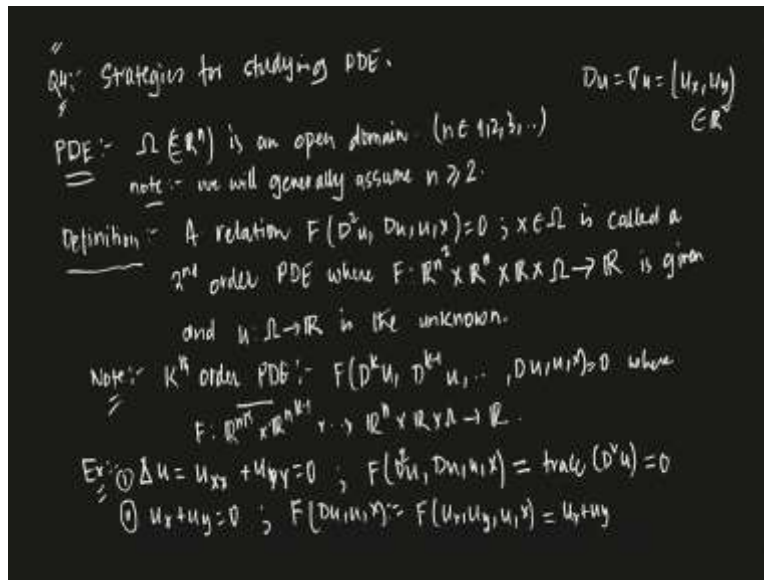 Q4:- Strategies for studying PDE.
Du = ∇u = (u_x, u_y)
∈ R²
PDE:- Ω (⊆ R^n) is an open domain. (n ∈ 1,2,3,..)
note:- we will generally assume n ≥ 2.
Definition:- A relation F(D²u, Du, u, x) = 0 ; x ∈ Ω is called a
2nd order PDE where F: R^{n²} × R^n × R × Ω → R is given
and u: Ω → R is the unknown.
Note:- K^th order PDE:- F(D^k u, D^{k-1} u, .. , Du, u, x) = 0 where
F: R^{n^k} × R^{n^{k-1}} × ..> R^n × R × Ω → R.
Ex:- ① Δu = u_xx + u_yy = 0 ; F(D²u, Du, u, x) = trace (D²u) = 0
u_x + u_y = 0 ; F(Du, u, x) := F(u_x, u_y, u, x) = u_x + u_y